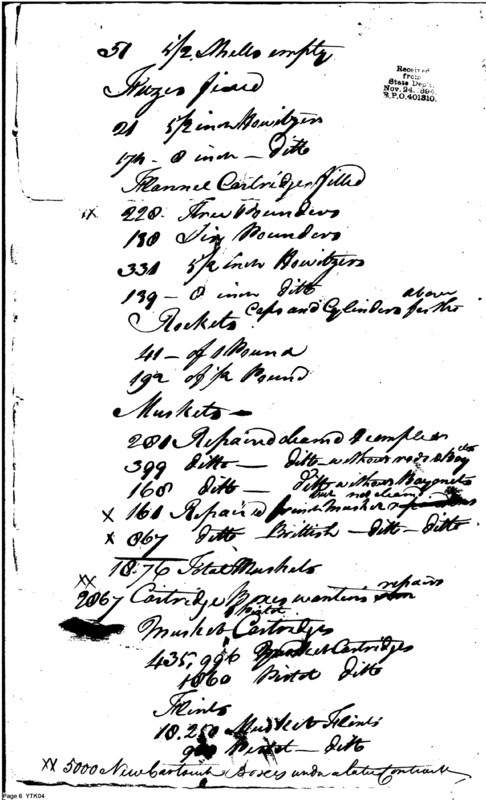 51 5½ Shells empty
Received
from
State Dep't.
Nov. 24, 1894
R.P.O. 401310.
Fuzes fixed
21 5½ inch Howitzers
174 - 8 inch - Ditto
Flannel Cartridges filled
xx 228. Three Pounders
188 Six Pounders
331 5½ inch Howitzers
139 - 8 inch ditto
Rockets Caps and Cylinders for the above
41 - of 1 Pound
192 of ½ Pound
Muskets -
281 Repaired cleaned & compleat
399 ditto - ditto - without rods & Bay
168 ditto - Ditto without Bayonets
x 161 Repaired but not clean
x 867 ditto Brittish - ditto - ditto
1876 Total Muskets
xx
2867 Cartridge Boxes wanting repairs
Musket Cartridges
435,996 Musket Cartridges
1860 Pistol ditto
Flints
18.250 Musket Flints
Pistol - ditto
xx 5000 New Cartouch Boxes under a late Contract
Page 6 YTK04